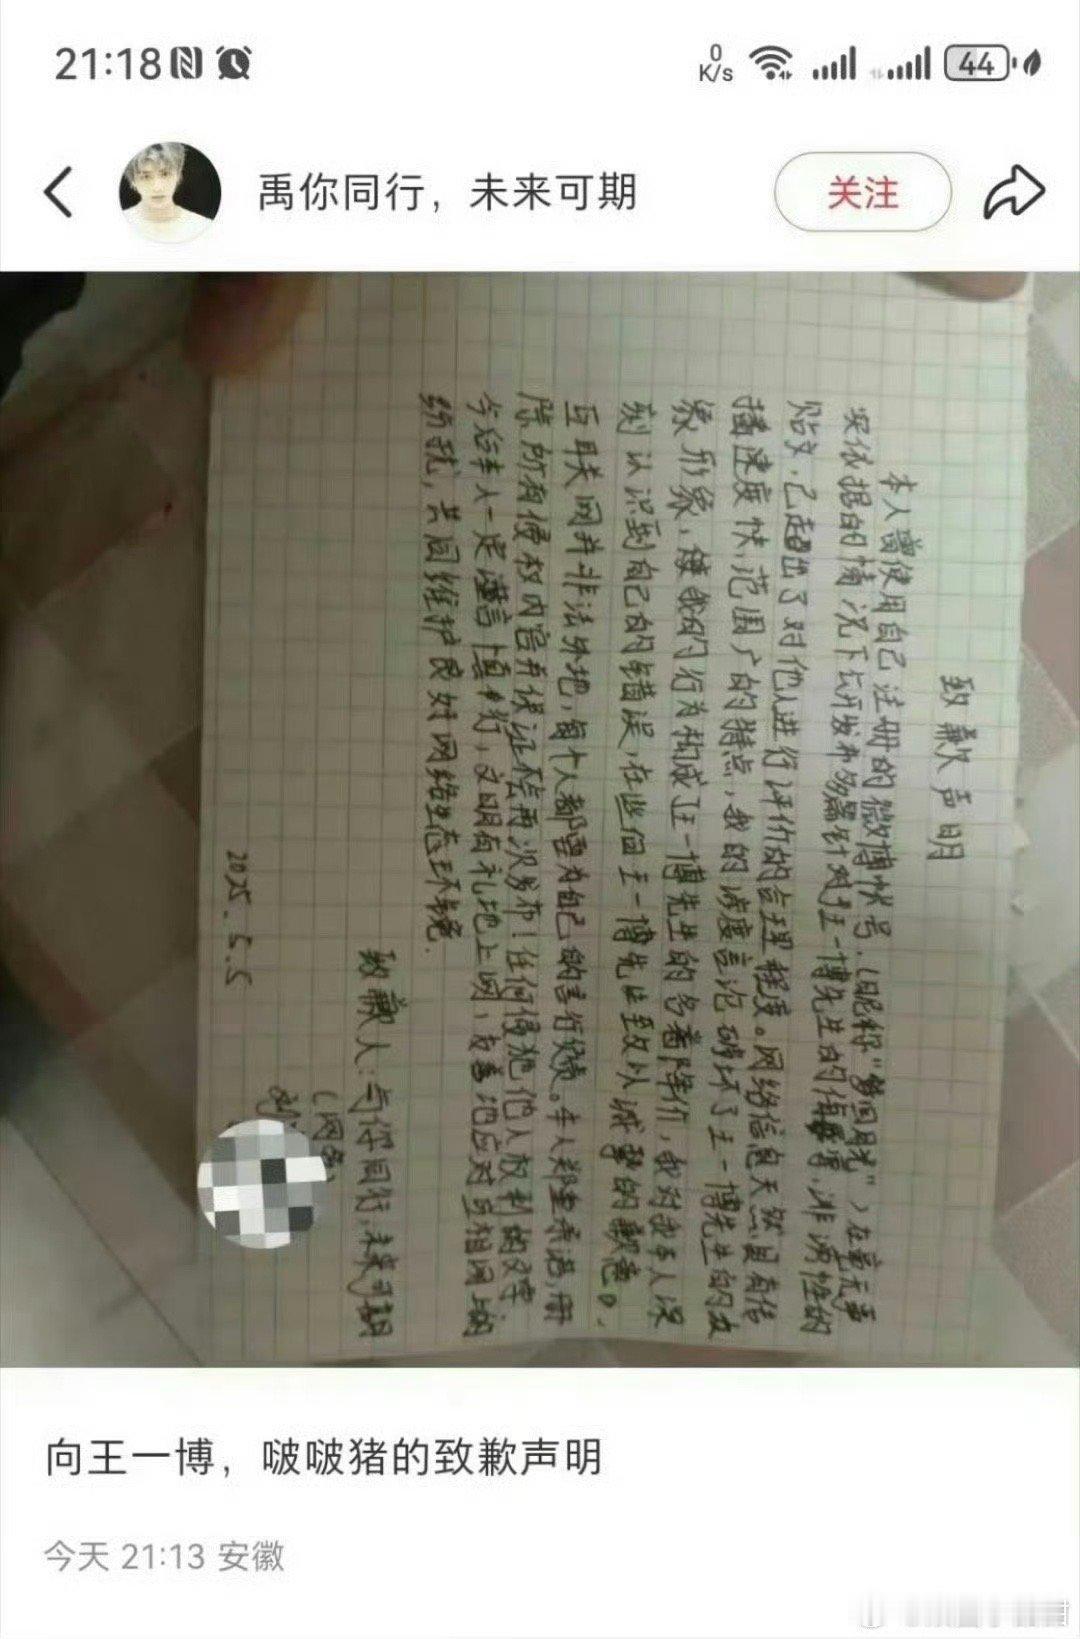 21:18
0
K/s
44
禹你同行，未来可期
关注
致歉声明
本人曾使用自己注册的微博帐号，（昵称“梦回月光”）在毫无事
实依据的情况下公开发布多篇针对王一博先生的侮辱，诽谤性的
贴文，已超出了对他人进行评价的合理程度。网络信息天然具有传
播速度快，范围广的特点，我的涉虚言论破坏了王一博先生的
象形象，使我的行为构成王一博先生的名誉降价，我对我本人深
刻认识到自己的错误，在此向王一博先生致以诚挚的歉意。
互联网并非法外地，每个人都需为自己的言行负责。本人郑重承诺，删
除所有侵权内容并保证不会再次发布！任何侵犯他人权利的文字
今后本人一定谨言慎行，文明有礼地上网，友善地应对互相网上的
纷扰，共同维护良好网络生态环境。
致歉人：与你同行，未来可期
（网名）
2025.5.5
向王一博，啵啵猪的致歉声明
今天 21:13 安徽